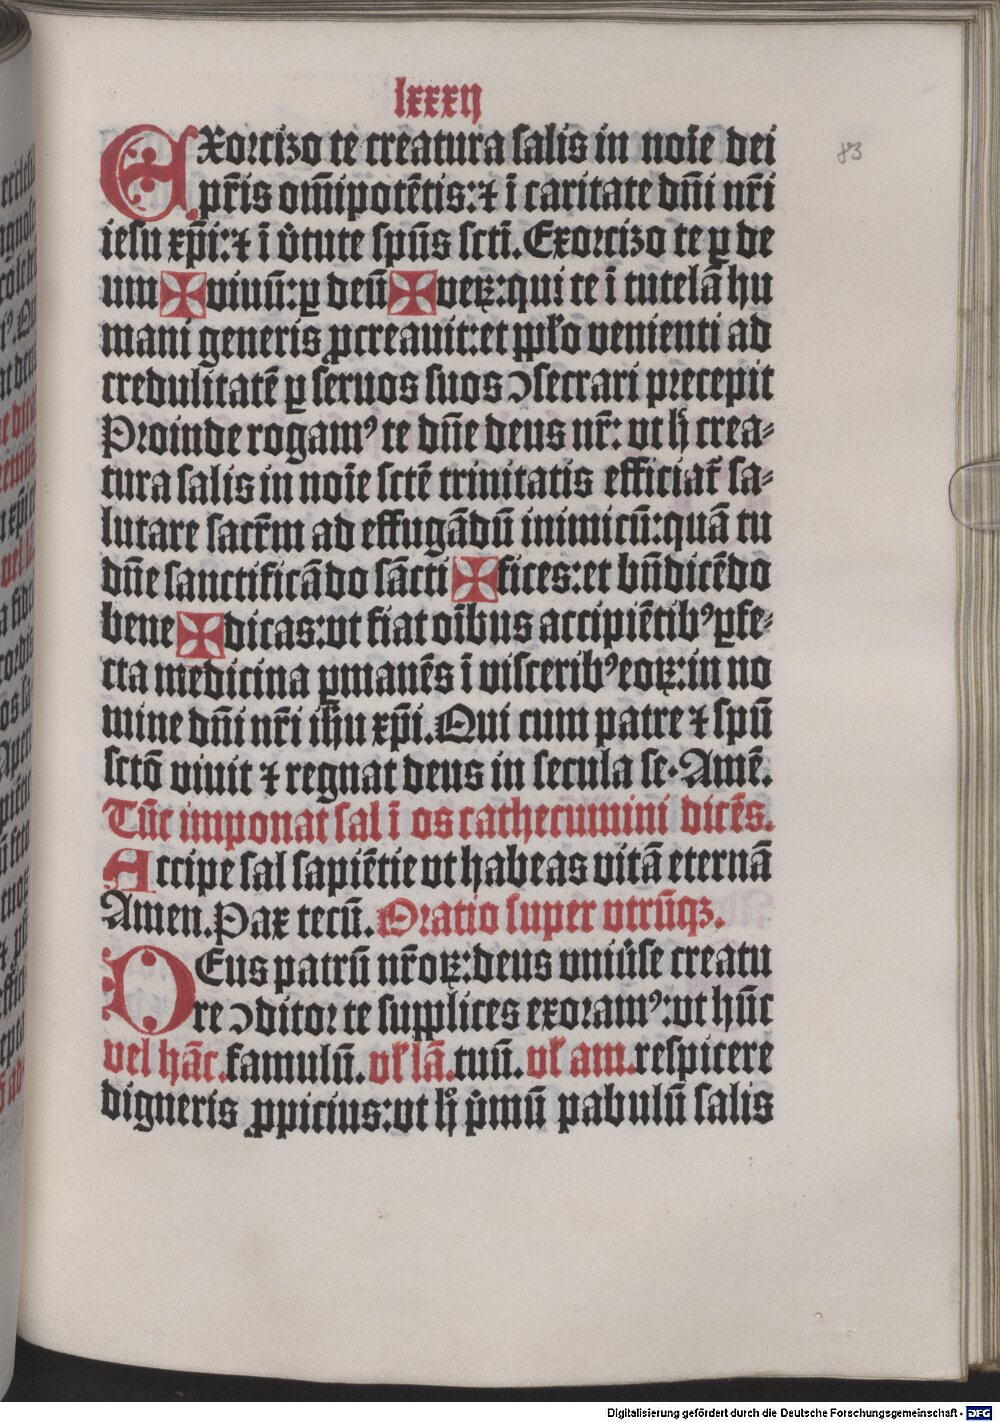 lxxxij
83
EXorcizo te creatura salis in noı̄e dei
pr̄is om̄ipotētis: ⁊ ī caritate dn̄i nr̄i
iesu xp̄i: ⁊ ī v̓tute spūs scti̅. Exorcizo te ꝑ de
um ✠ viuū: ꝑ deū ✠ veꝝ: qui te ī tutelā hu
mani generis ꝓcreauit: et ppl̄o venienti ad
credulitatē ꝑ seruos suos ↄsecrari precepit
Proinde rogamꝰ te dn̄e deus nr̄: vt h̄ crea-
tura salis in noı̄e sctē trinitatis efficiat̄ sa-
lutare sacr̄m ad effugādū inimicū: quā tu
dn̄e sanctificādo sācti ✠ fices: et bn̄dicēdo
bene ✠ dicas: vt fiat oı̄bus accipiētibꝰ ꝑfe-
cta medicina ꝑmanēs ī visceribꝰ eoꝝ: in no
mine dn̄i nr̄i ih̄u xp̄i. Qui cum patre ⁊ spū
sctō viuit ⁊ regnat deus in secula se. Amē.
Tūc imponat sal ī os cathecumini dicēs.
Accipe sal sapiētie vt habeas vitā eternā
Amen. Pax tecū. Oratio super vtrūqꝫ.
DEus patrū nr̄oꝝ: deus vniu̓se creatu
re ↄditor te supplices exoramꝰ: vt hūc
vel hāc. famulū. vl̓ lā. tuū. vl̓ am. respicere
digneris ꝓpicius: vt hͦ p̓mū pabulū salis
Digitalisierung gefördert durch die Deutsche Forschungsgemeinschaft - DFG